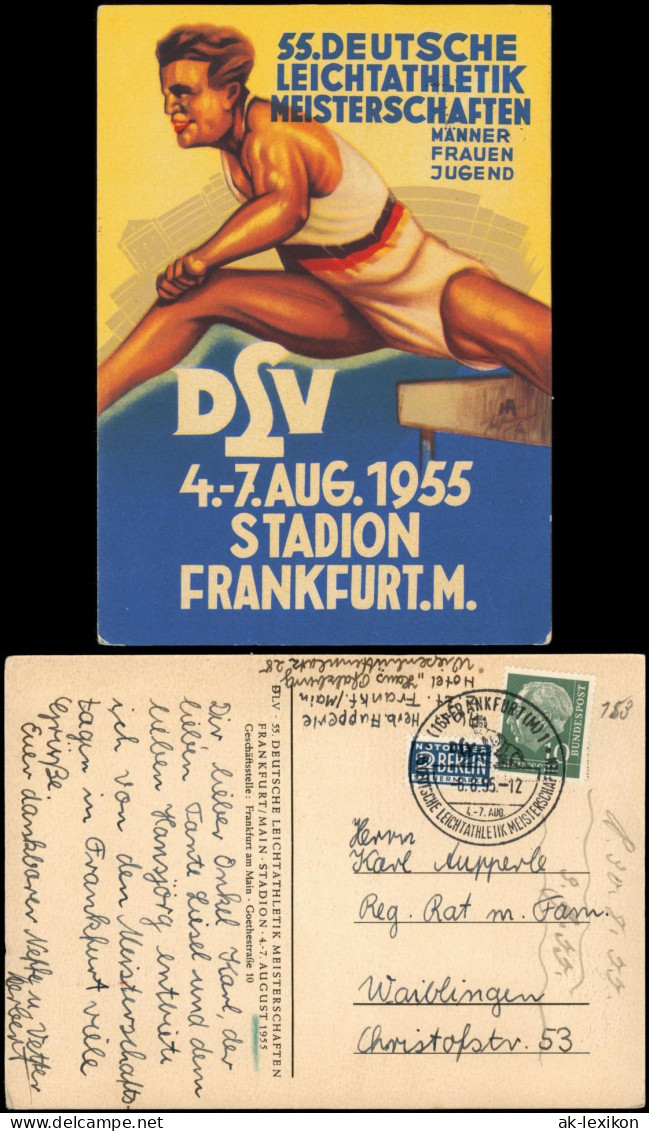 55. DEUTSCHE
LEICHTATHLETIK
MEISTERSCHAFTEN
MÄNNER
FRAUEN
JUGEND
DLV
4.-7. AUG. 1955
STADION
FRANKFURT.M.
Dir lieber Onkel Karl, der
lieben Tante Liesel und dem
lieben Hansjörg entbiete
ich von den Meisterschafts-
tagen in Frankfurt viele
Grüße.
Euer dankbarer Neffe u. Vetter
Herbert
DLV · 55. DEUTSCHE LEICHTATHLETIK MEISTERSCHAFTEN
FRANKFURT/MAIN · STADION · 4.-7. AUGUST 1955
Geschäftsstelle: Frankfurt am Main · Goethestraße 10
Herb. Aupperle
z.Zt. Frankf./Main
Hotel „Haus Pfalzburg"
28
DEUTSCHE BUNDESPOST
10
NOTOPFER
2 BERLIN
STEUERMARKE
(16) FRANKFURT (M) 7
6.8.55.-12
4.-7. AUG.
DEUTSCHE LEICHTATHLETIK MEISTERSCHAFTEN
153
Herrn
Karl Aupperle
Reg. Rat m. Fam.
Waiblingen
Christofstr. 53
ak-lexikon